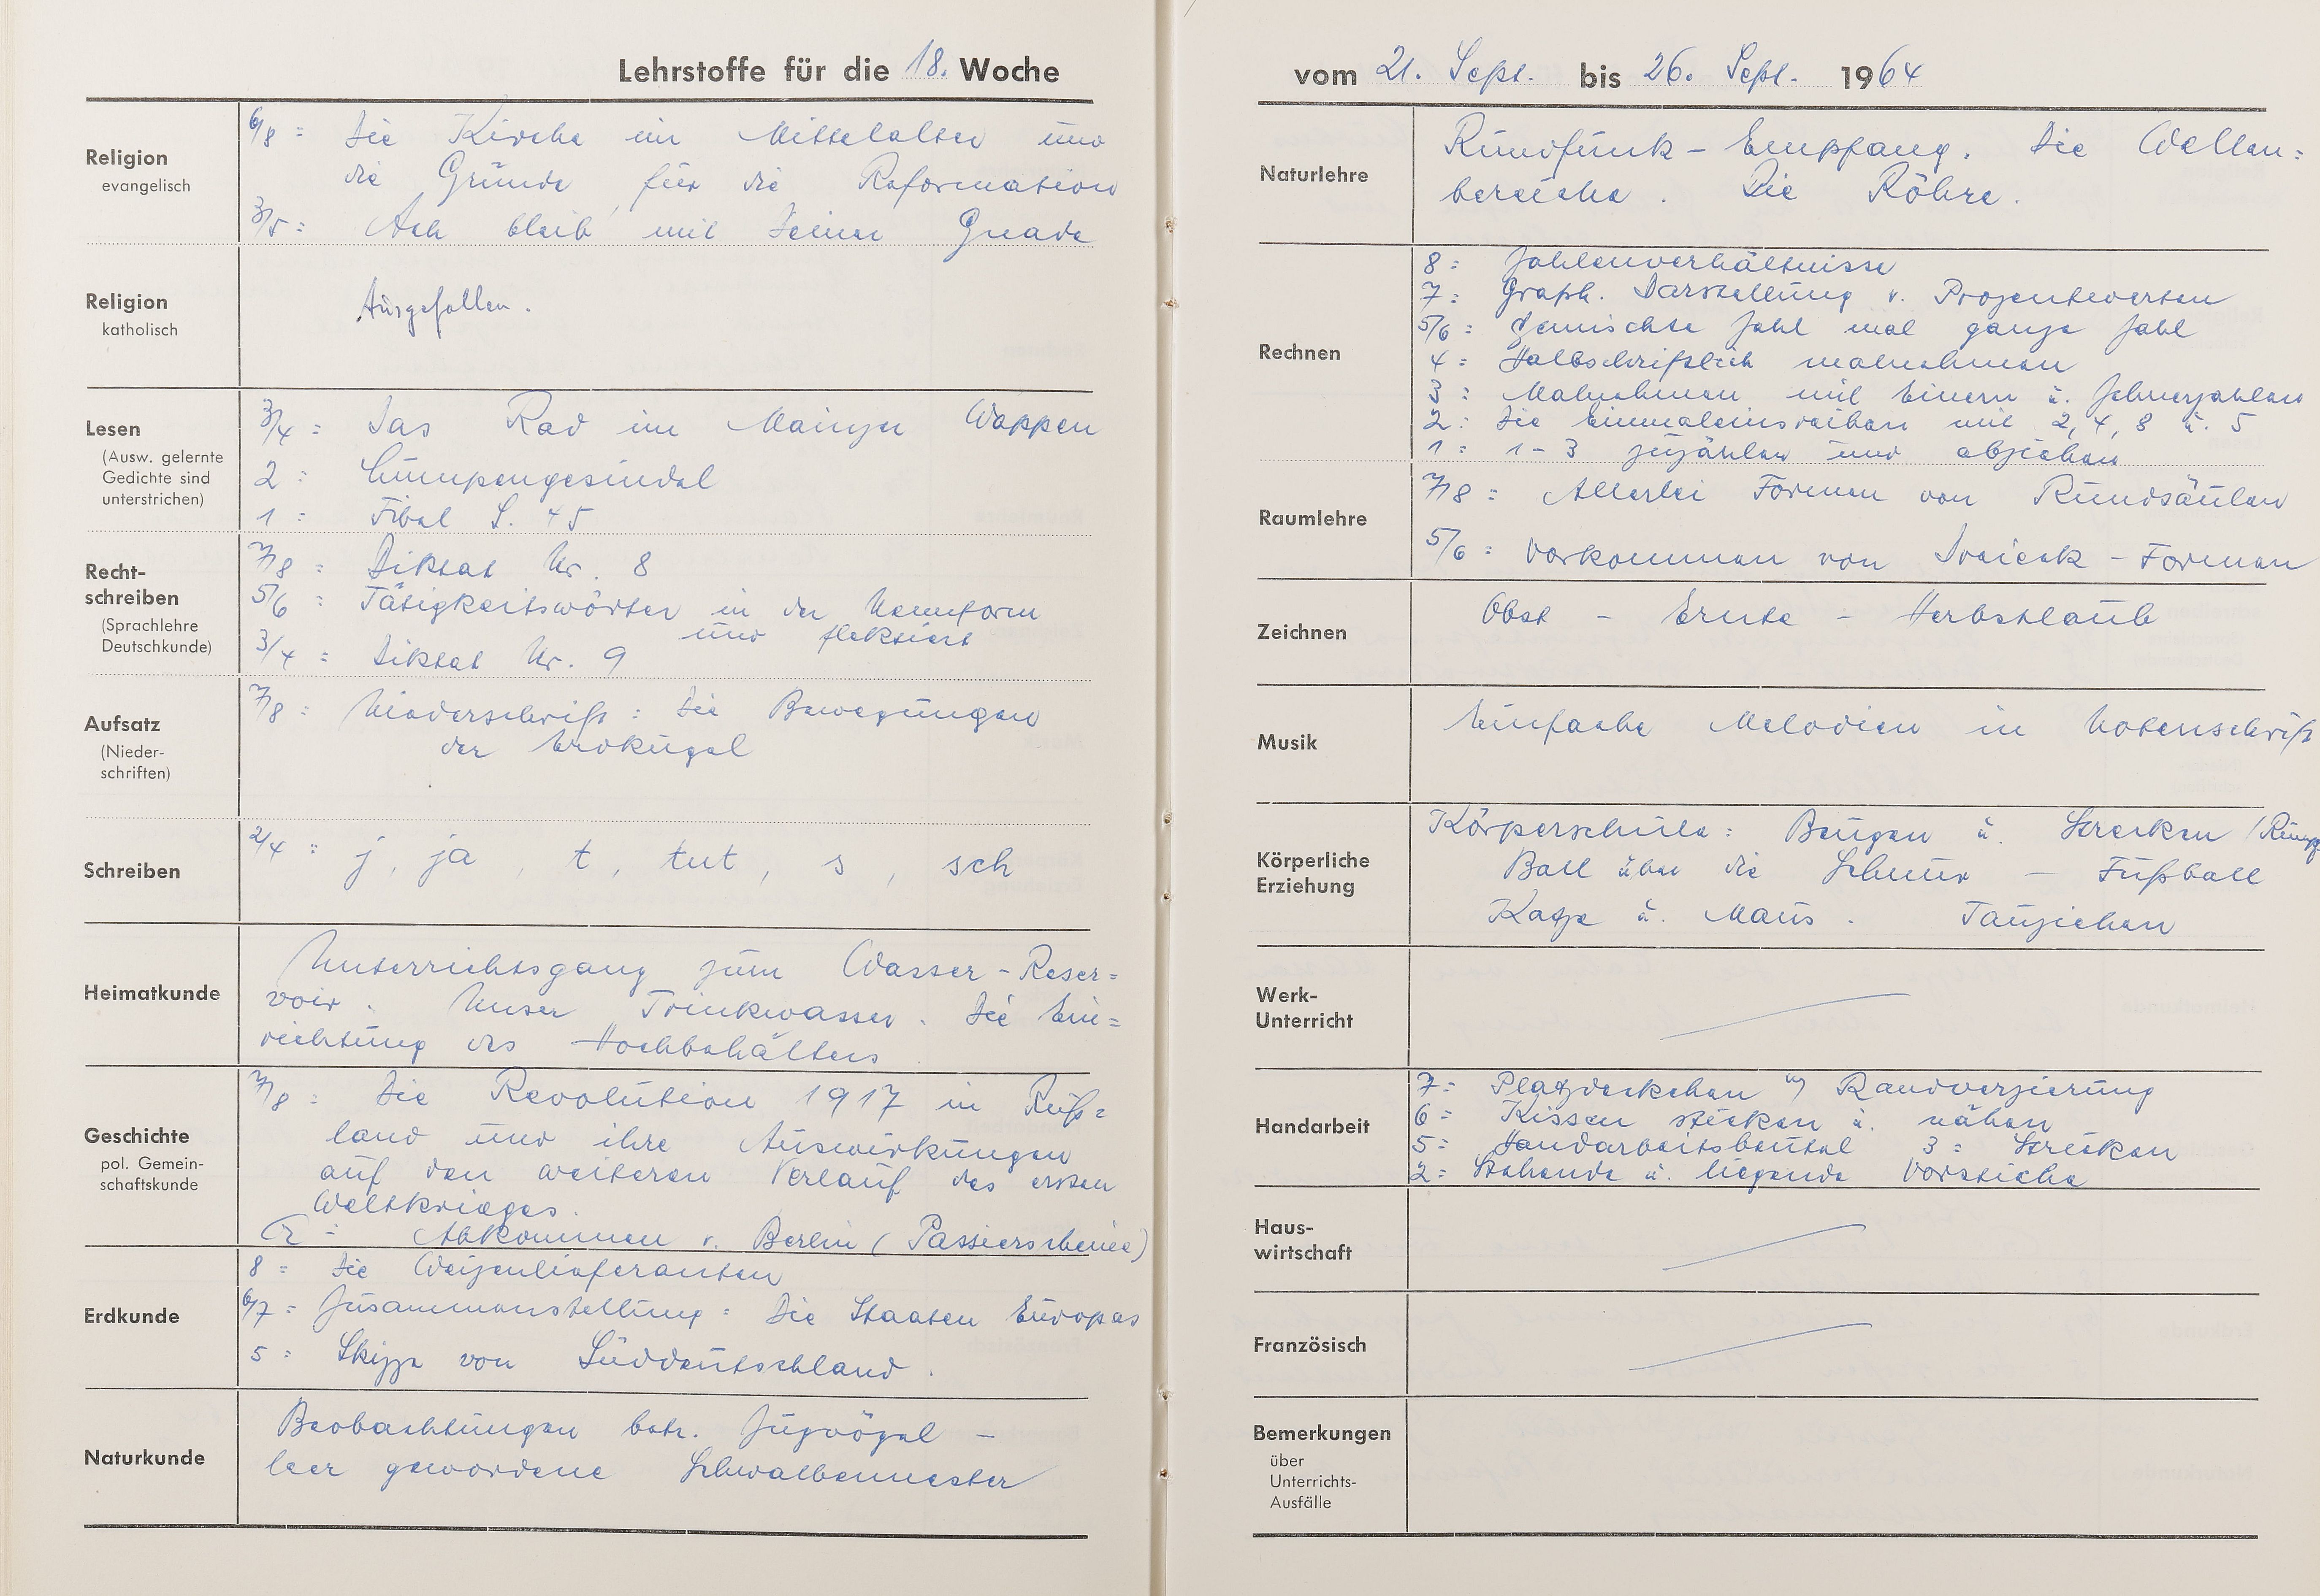 Lehrstoffe für die 18. Woche
Religion
evangelisch
6/8 = Die Kirche im Mittelalter und
die Gründe für die Reformation
3/5 = Ach bleib mit Deiner Gnade
Religion
katholisch
Ausgefallen.
Lesen
(Ausw. gelernte
Gedichte sind
unterstrichen)
3/4 = Das Rad im Mainzer Wappen
2 = Lumpengesindel
1 = Fibel S. 45
Recht-
schreiben
(Sprachlehre
Deutschkunde)
7/8 = Diktat Nr. 8
5/6 = Tätigkeitswörter in der Nennform
und flektiert
3/4 = Diktat Nr. 9
Aufsatz
(Nieder-
schriften)
7/8 = Niederschrift: Die Bewegungen
der Erdkugel
Schreiben
2/4 = j, ja, t, tut, s, sch
Heimatkunde
Unterrichtsgang zum Wasser-Reser=
voir. Unser Trinkwasser. Die Ein=
richtung des Hochbehälters
Geschichte
pol. Gemein-
schaftskunde
7/8 = Die Revolution 1917 in Ruß=
land und ihre Auswirkungen
auf den weiteren Verlauf des ersten
Weltkrieges.
= Abkommen v. Berlin (Passierscheine)
Erdkunde
8 = Die Weizenlieferanten
6/7 = Zusammenstellung: Die Staaten Europas
5 = Skizze von Süddeutschland.
Naturkunde
Beobachtungen betr. Zugvögel -
leer gewordene Schwalbennester
vom 21. Sept. bis 26. Sept. 1964
Naturlehre
Rundfunk-Empfang. Die Wellen=
bereiche. Die Röhre.
Rechnen
8 = Zahlenverhältnisse
7 = Graph. Darstellung v. Prozentwerten
5/6 = Gemischte Zahl mal ganze Zahl
4 = Halbschriftlich malnehmen
3 = Malnehmen mit Einern u. Zehnerzahlen
2 = Die Einmaleinsreihen mit 2, 4, 8 u. 5
1 = 1-3 zuzählen und abziehen
Raumlehre
7/8 = Allerlei Formen von Rundsäulen
5/6 = Vorkommen von Dreieck-Formen
Zeichnen
Obst - Ernte - Herbstlaub
Musik
Einfache Melodien in Notenschrift
Körperliche
Erziehung
Körperschule: Beugen u. Strecken (Rumpf
Ball über die Schnur - Fußball
Katze u. Maus. Tauziehen
Werk-
Unterricht
Handarbeit
7 = Platzdeckchen m/ Randverzierung
6 = Kissen sticken u. nähen
5 = Handarbeitsbeutel 3 = Stricken
2 = Stehende u. liegende Vorstiche
Haus-
wirtschaft
Französisch
Bemerkungen
über
Unterrichts-
Ausfälle